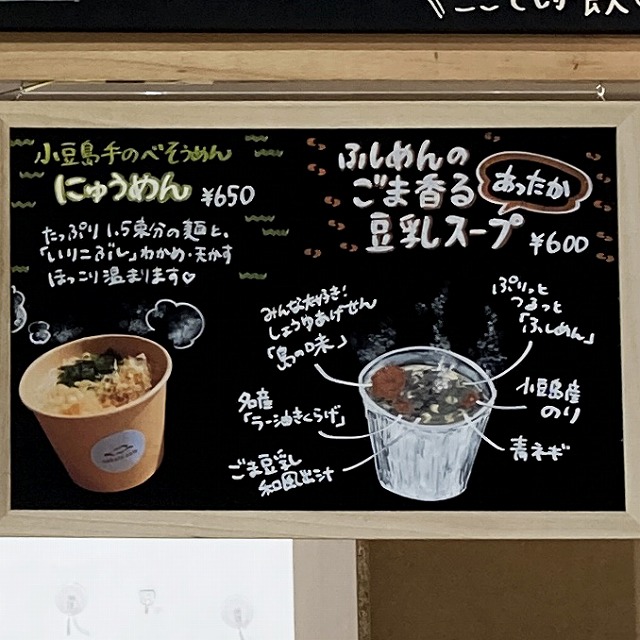 ここでも飲
小豆島手のべそうめん
にゅうめん ¥650
たっぷり1.5束分の麺と、
「いりこだし」わかめ・天かす
ほっこり温まります♡
ふしめんの
ごま香る
豆乳スープ ¥600
あったか
みんな大好き!
しょうゆあげせん
「島の味」
ぷりっと
つるっと
「ふしめん」
名産
「ラー油きくらげ」
小豆島産
のり
ごま豆乳
和風出汁
青ネギ